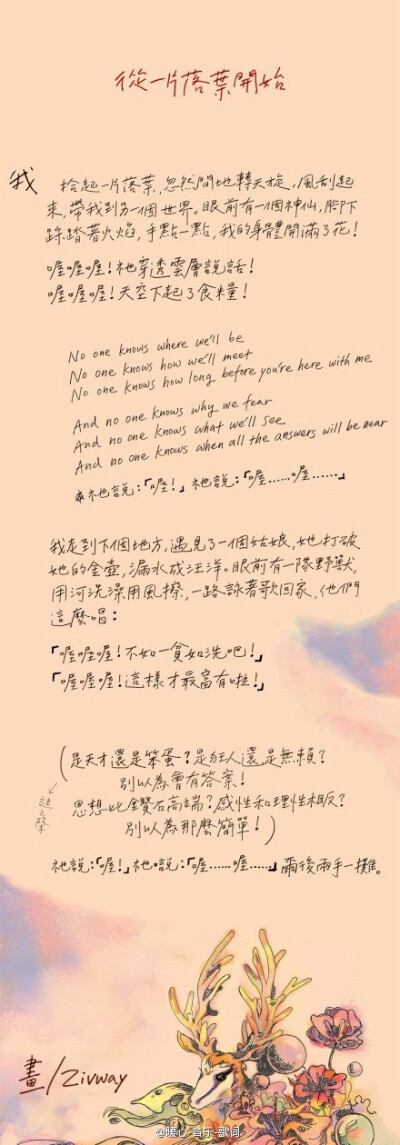 從一片落葉開始
我 拾起一片落葉,忽然間地轉天旋,風刮起
來,帶我到另一個世界。眼前有一個神仙,腳下
踩踏著火焰,手點一點,我的身體開滿了花!
喔喔喔!祂穿透雲層說話!
喔喔喔!天空下起了食糧!
No one knows where we'll be
No one knows how we'll meet
No one knows how long before you're here with me
And no one knows why we fear
And no one knows what we'll see
And no one knows when all the answers will be near
祂說:「喔!」祂說:「喔……喔……」
我走到下個地方,遇見了一個姑娘,她打破
她的金壺,漏水成汪洋。眼前有一隊野獸,
用河洗澡用風擦,一路詠著歌回家,他們
這麼唱:
「喔喔喔!不如一貧如洗吧!」
「喔喔喔!這樣才最富有啦!」
(是天才還是笨蛋?是狂人還是無賴?
別以為會有答案!
思想比鑽石高端?感性和理性相叛?
別以為那麼簡單!)
祂說:「喔!」祂說:「喔……喔……」爾後兩手一攤。
畫/Zivway
@暖心-音乐-歌词